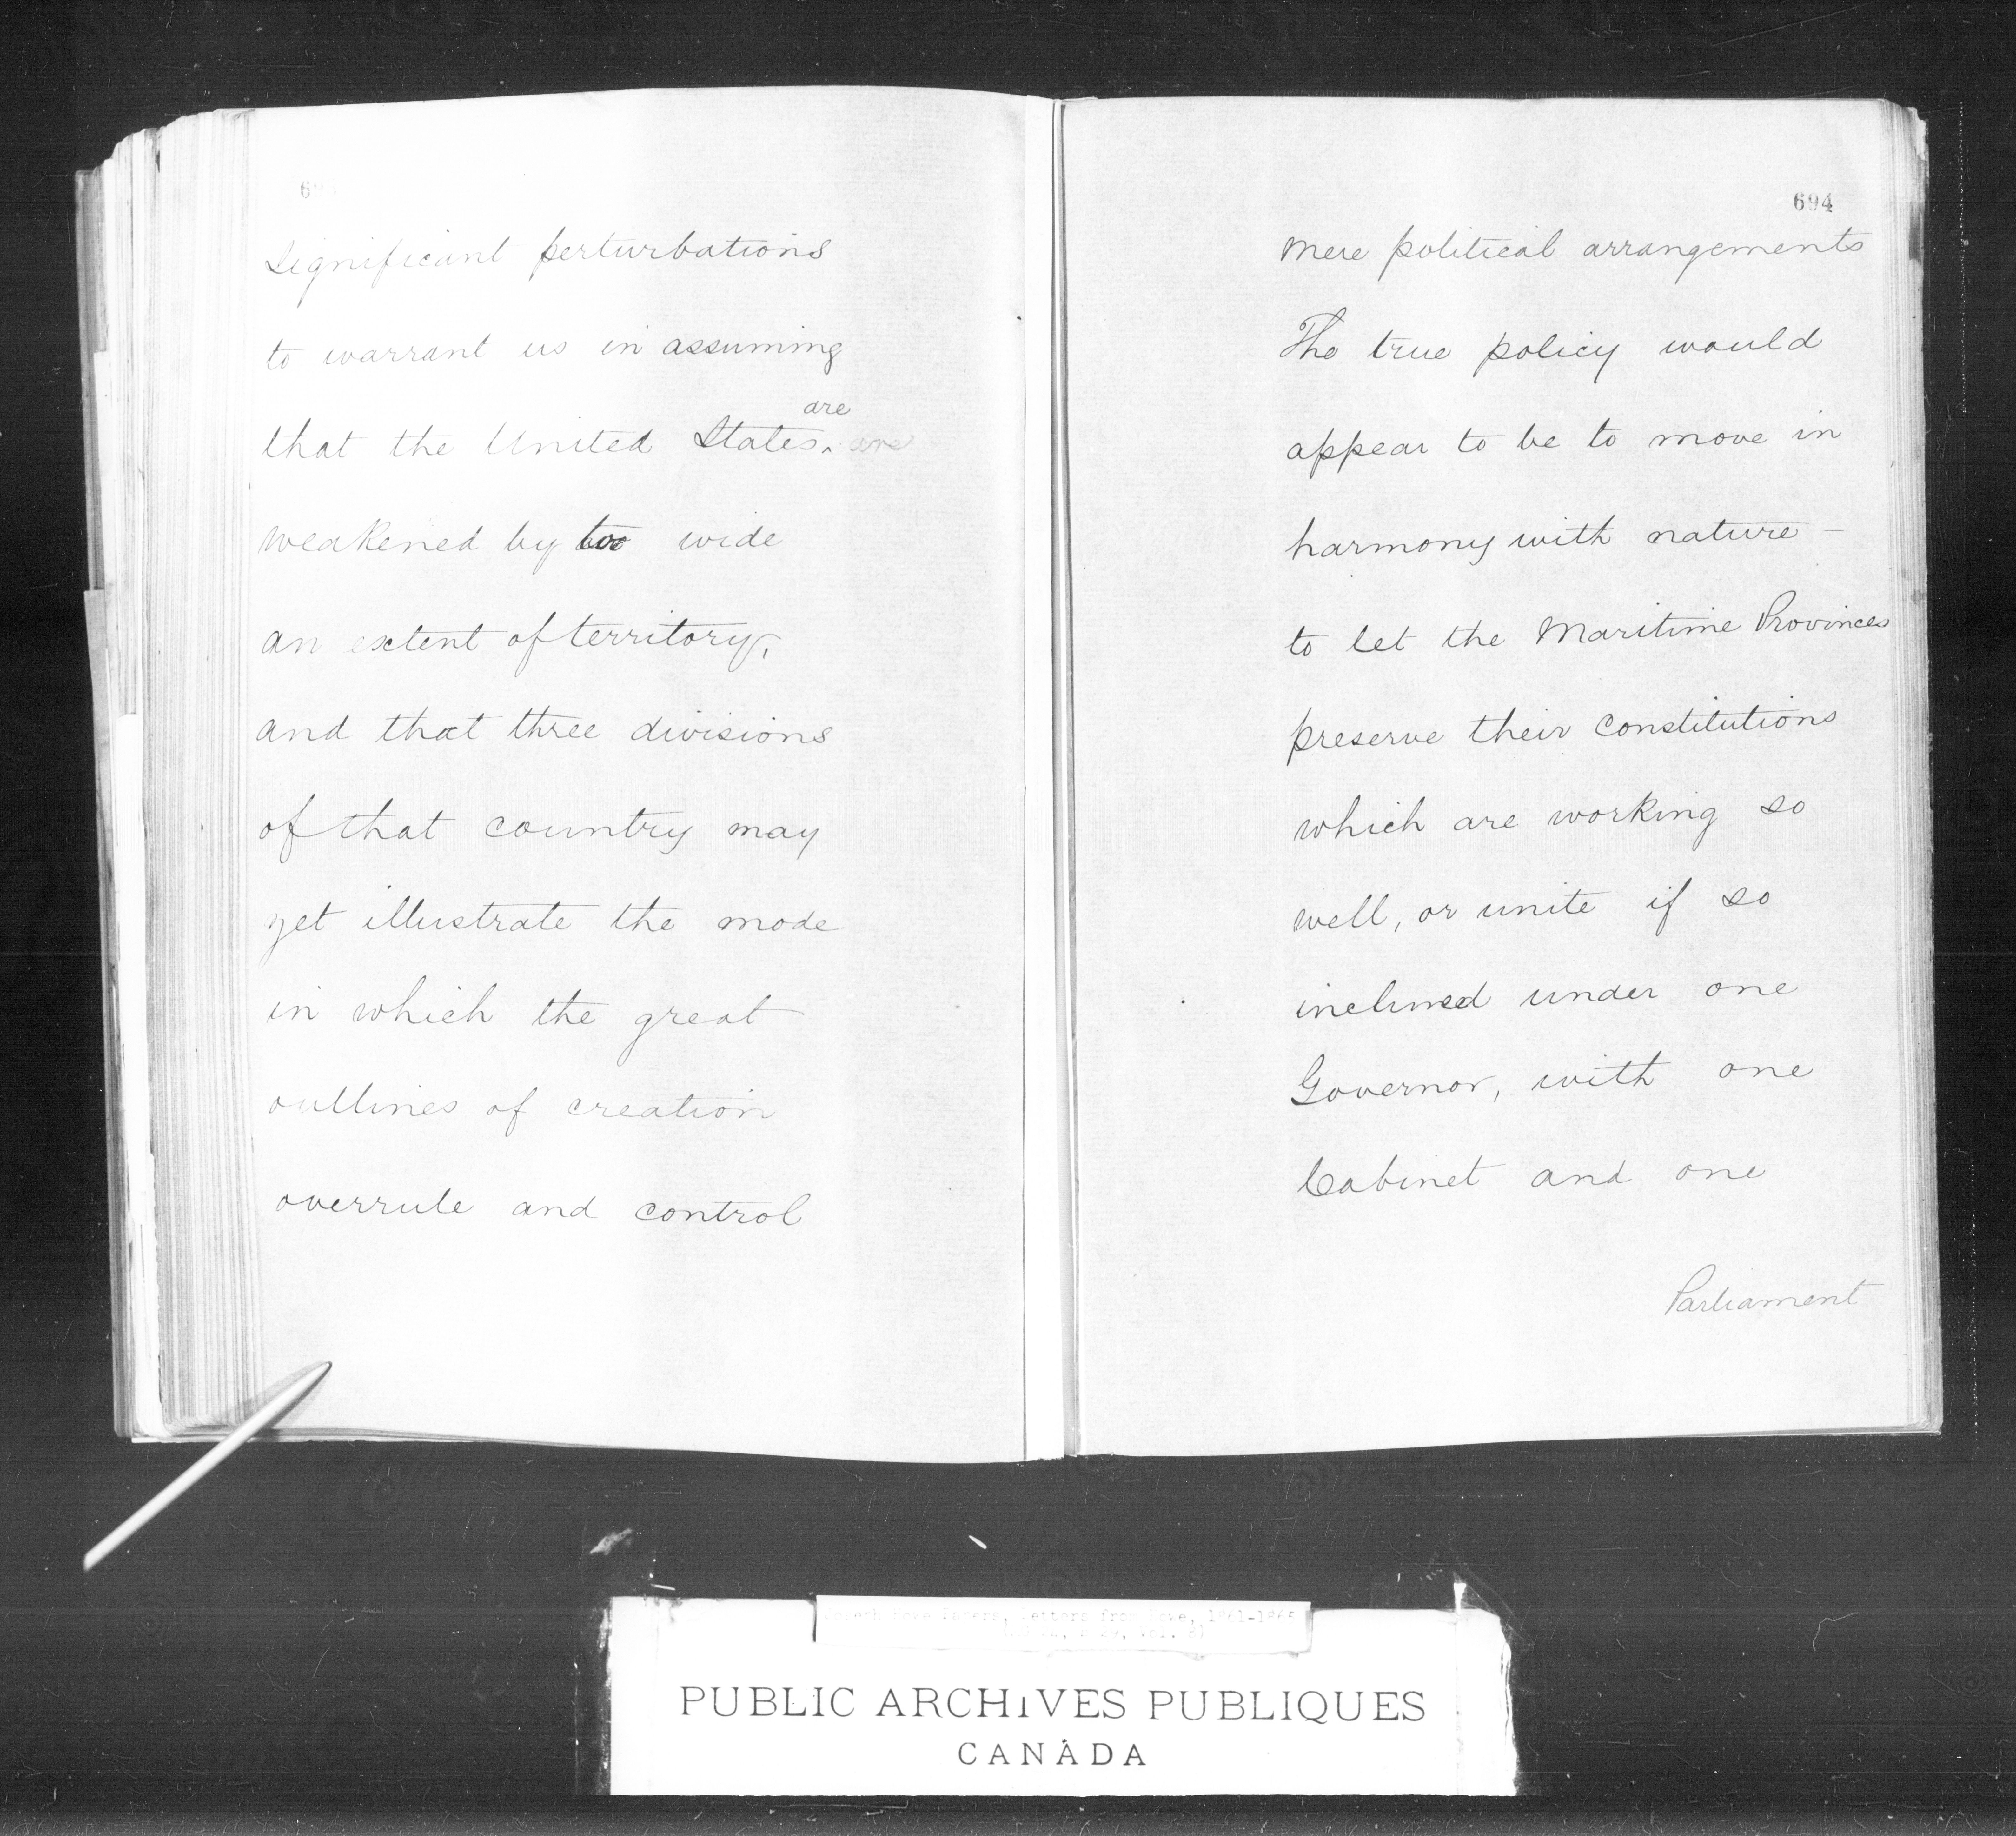 significant perturbations
to warrant us in assuming
are
that the United States. are
weakened by too wide
an extent of territory,
and that three divisions
of that country may
yet illustrate the mode
in which the great
outlines of creation
overrule and control
694
mere political arrangements
The true policy would
appear to be to move in
harmony with nature –
to let the Maritime Provinces
preserve their constitutions
which are working so
well, or unite if so
inclined under one
Governor, with one
Cabinet and one
Parliament
Letters from 1861-1865
PUBLIC ARCHIVES PUBLIQUES
CANADA